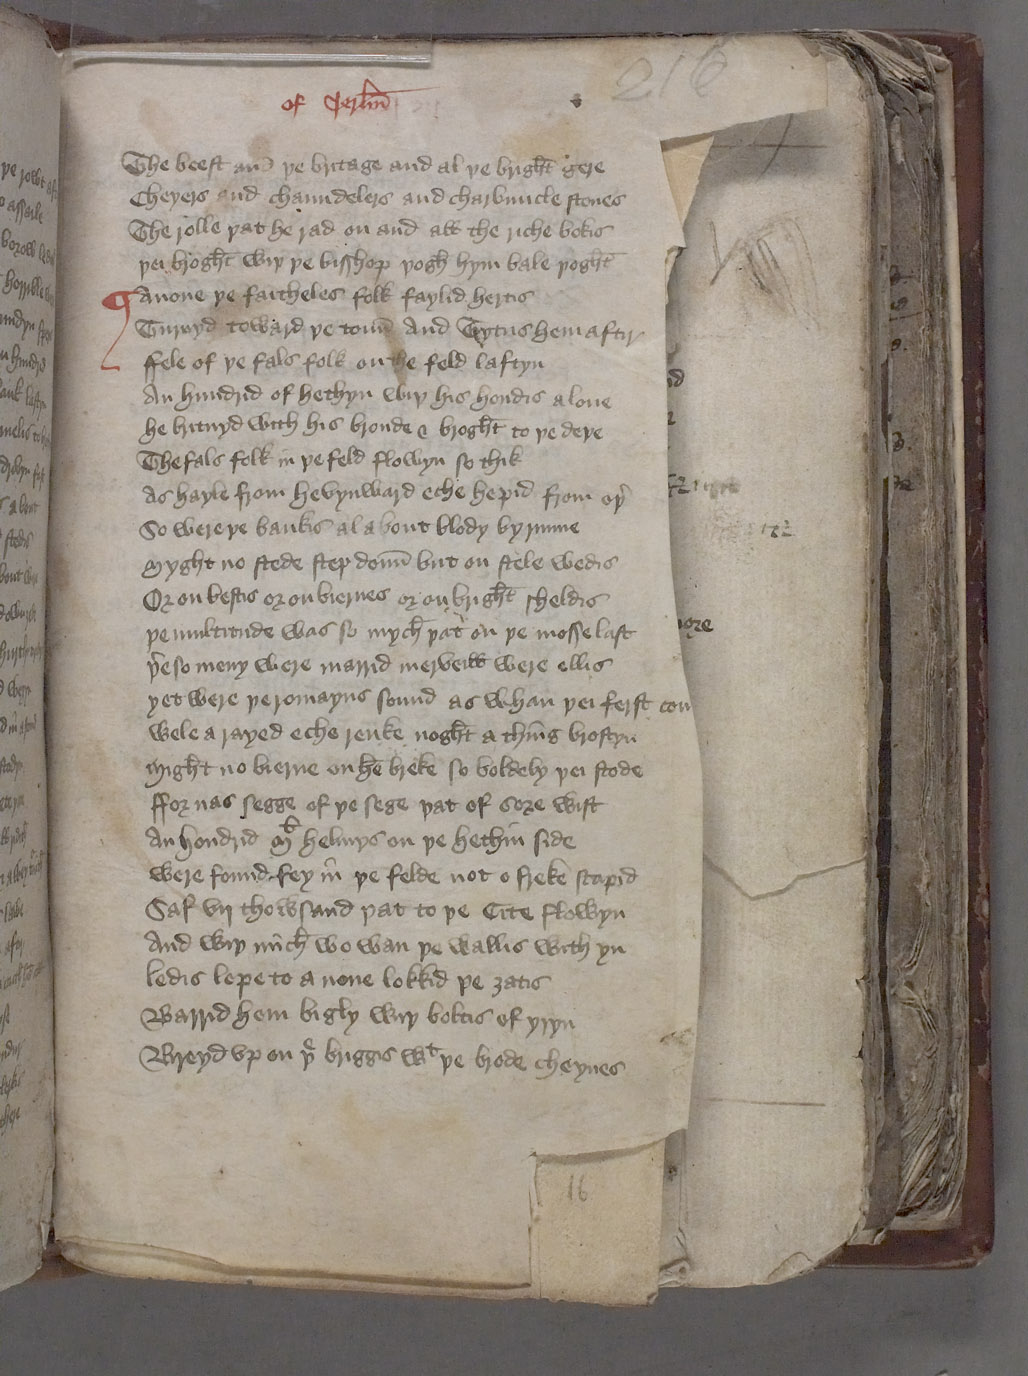 of Jerlm̄
216
The beest and þe britage and al þe bright gere
Cheyers and chaundelers and charbuncle stones
The rolle þat he rad on and all the riche bokis
þei broght wiþ þe bisshop þogh hym bale þoght
¶ Anone þe faitheles folk faylid hertis
Turnyd toward þe toun And Tytus hem aftir
ffele of þe fals folk on the feld laftyn
An hundrid of hethyn wiþ his hondis alone
he britnyd with his bronde & broght to þe deþe
The fals folk in þe feld flowyn so thik
As hayle from hevynward eche hepid from oþ͛
So were þe bankis al about blody by runne
Myght no stede step doun but on stele wedis
Or on bestis or on biernes or on bright scheldis
þe multitude was so mych þat on þe mosse last
þ͛e so meny were marrid merveill were ellis
yet were þe romayns sound as whan þei ferst com
wele arayed eche renke noght a thing brostyn
Might no bierne on he breke so boldely þei stode
ffor nas segge of þe sege þat of sore wist
An hondrid Ml helmys on þe hethin side
were found fey in þe felde not o freke scapid
Saf vij thowsand þat to þe Cite flowyn
And wiþ mich wo wan þe wallis with yn
ledis lepe to anone lokkid þe ȝatis
Barrid hem bigly wiþ boltis of yryn
Breyd vp on þ͛ briggis wt þe brode cheynes
16